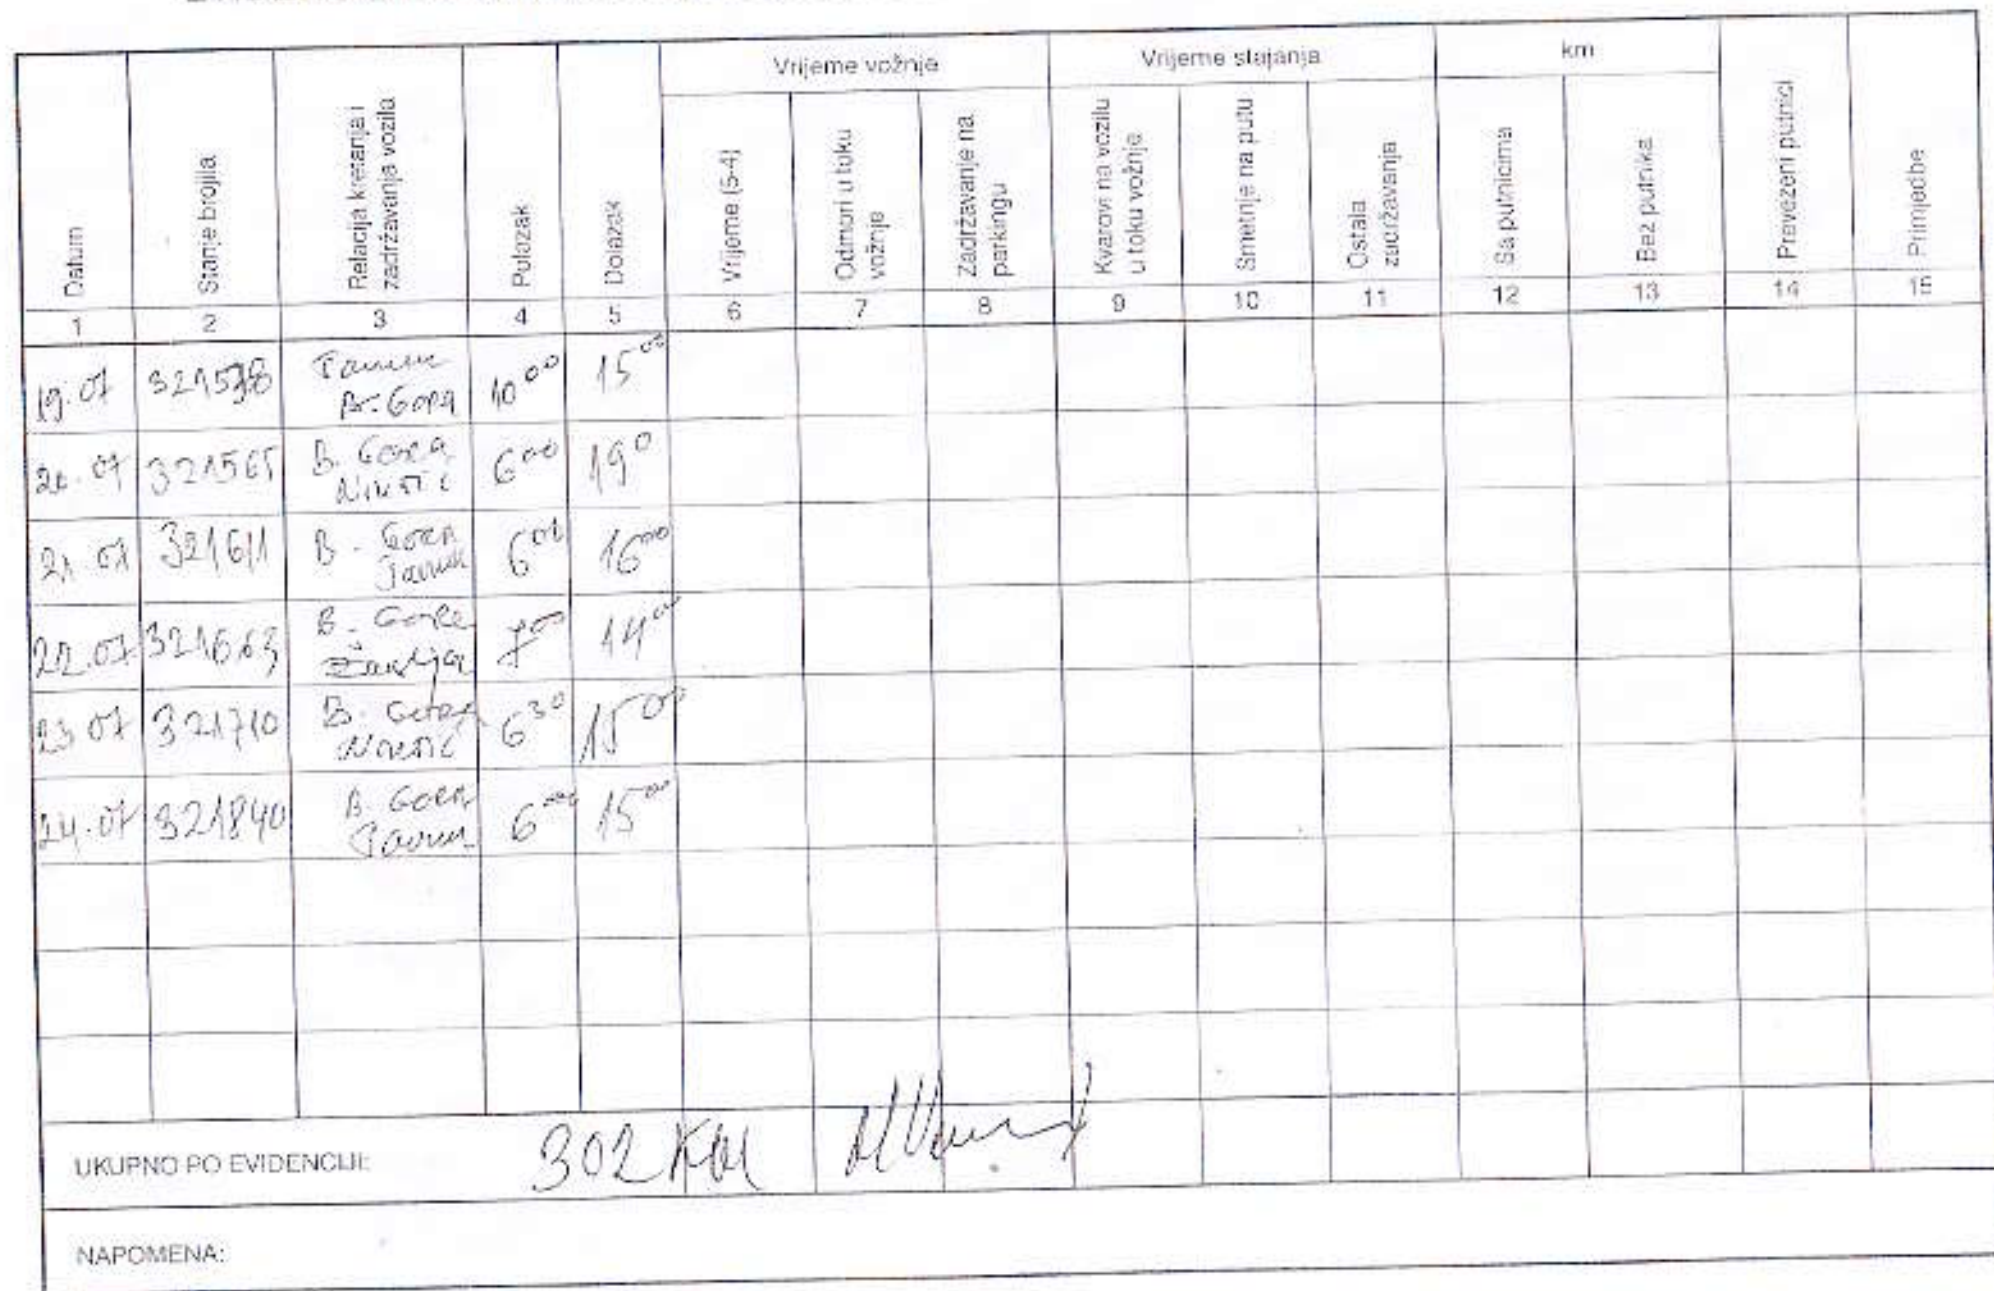 Vrijeme vožnje Vrijeme stajanja km
Datum
Stanje brojila
Relacija kretanja i
zadržavanja vozila
Polazak
Dolazak
Vrijeme (5-4)
Odmori u toku
vožnje
Zadržavanje na
parkingu
Kvarovi na vozilu
u toku vožnje
Smetnje na putu
Ostala
zadržavanja
Sa putnicima
Bez putnika
Prevezeni putnici
Primjedbe
1 2 3 4 5 6 7 8 9 10 11 12 13 14 15
19.07 B. Gora 10 00 15 00
20.07 321565 B. Gora 6 00 19 0
21.07 321611 B. Gora 6 00 16 00
22.07 321663 B. Gora 7 00 14 00
23.07 321710 B. Gora 6 30 15 00
24.07 321840 B. Gora 6 00 15 00
UKUPNO PO EVIDENCIJI: 302 KM
NAPOMENA: